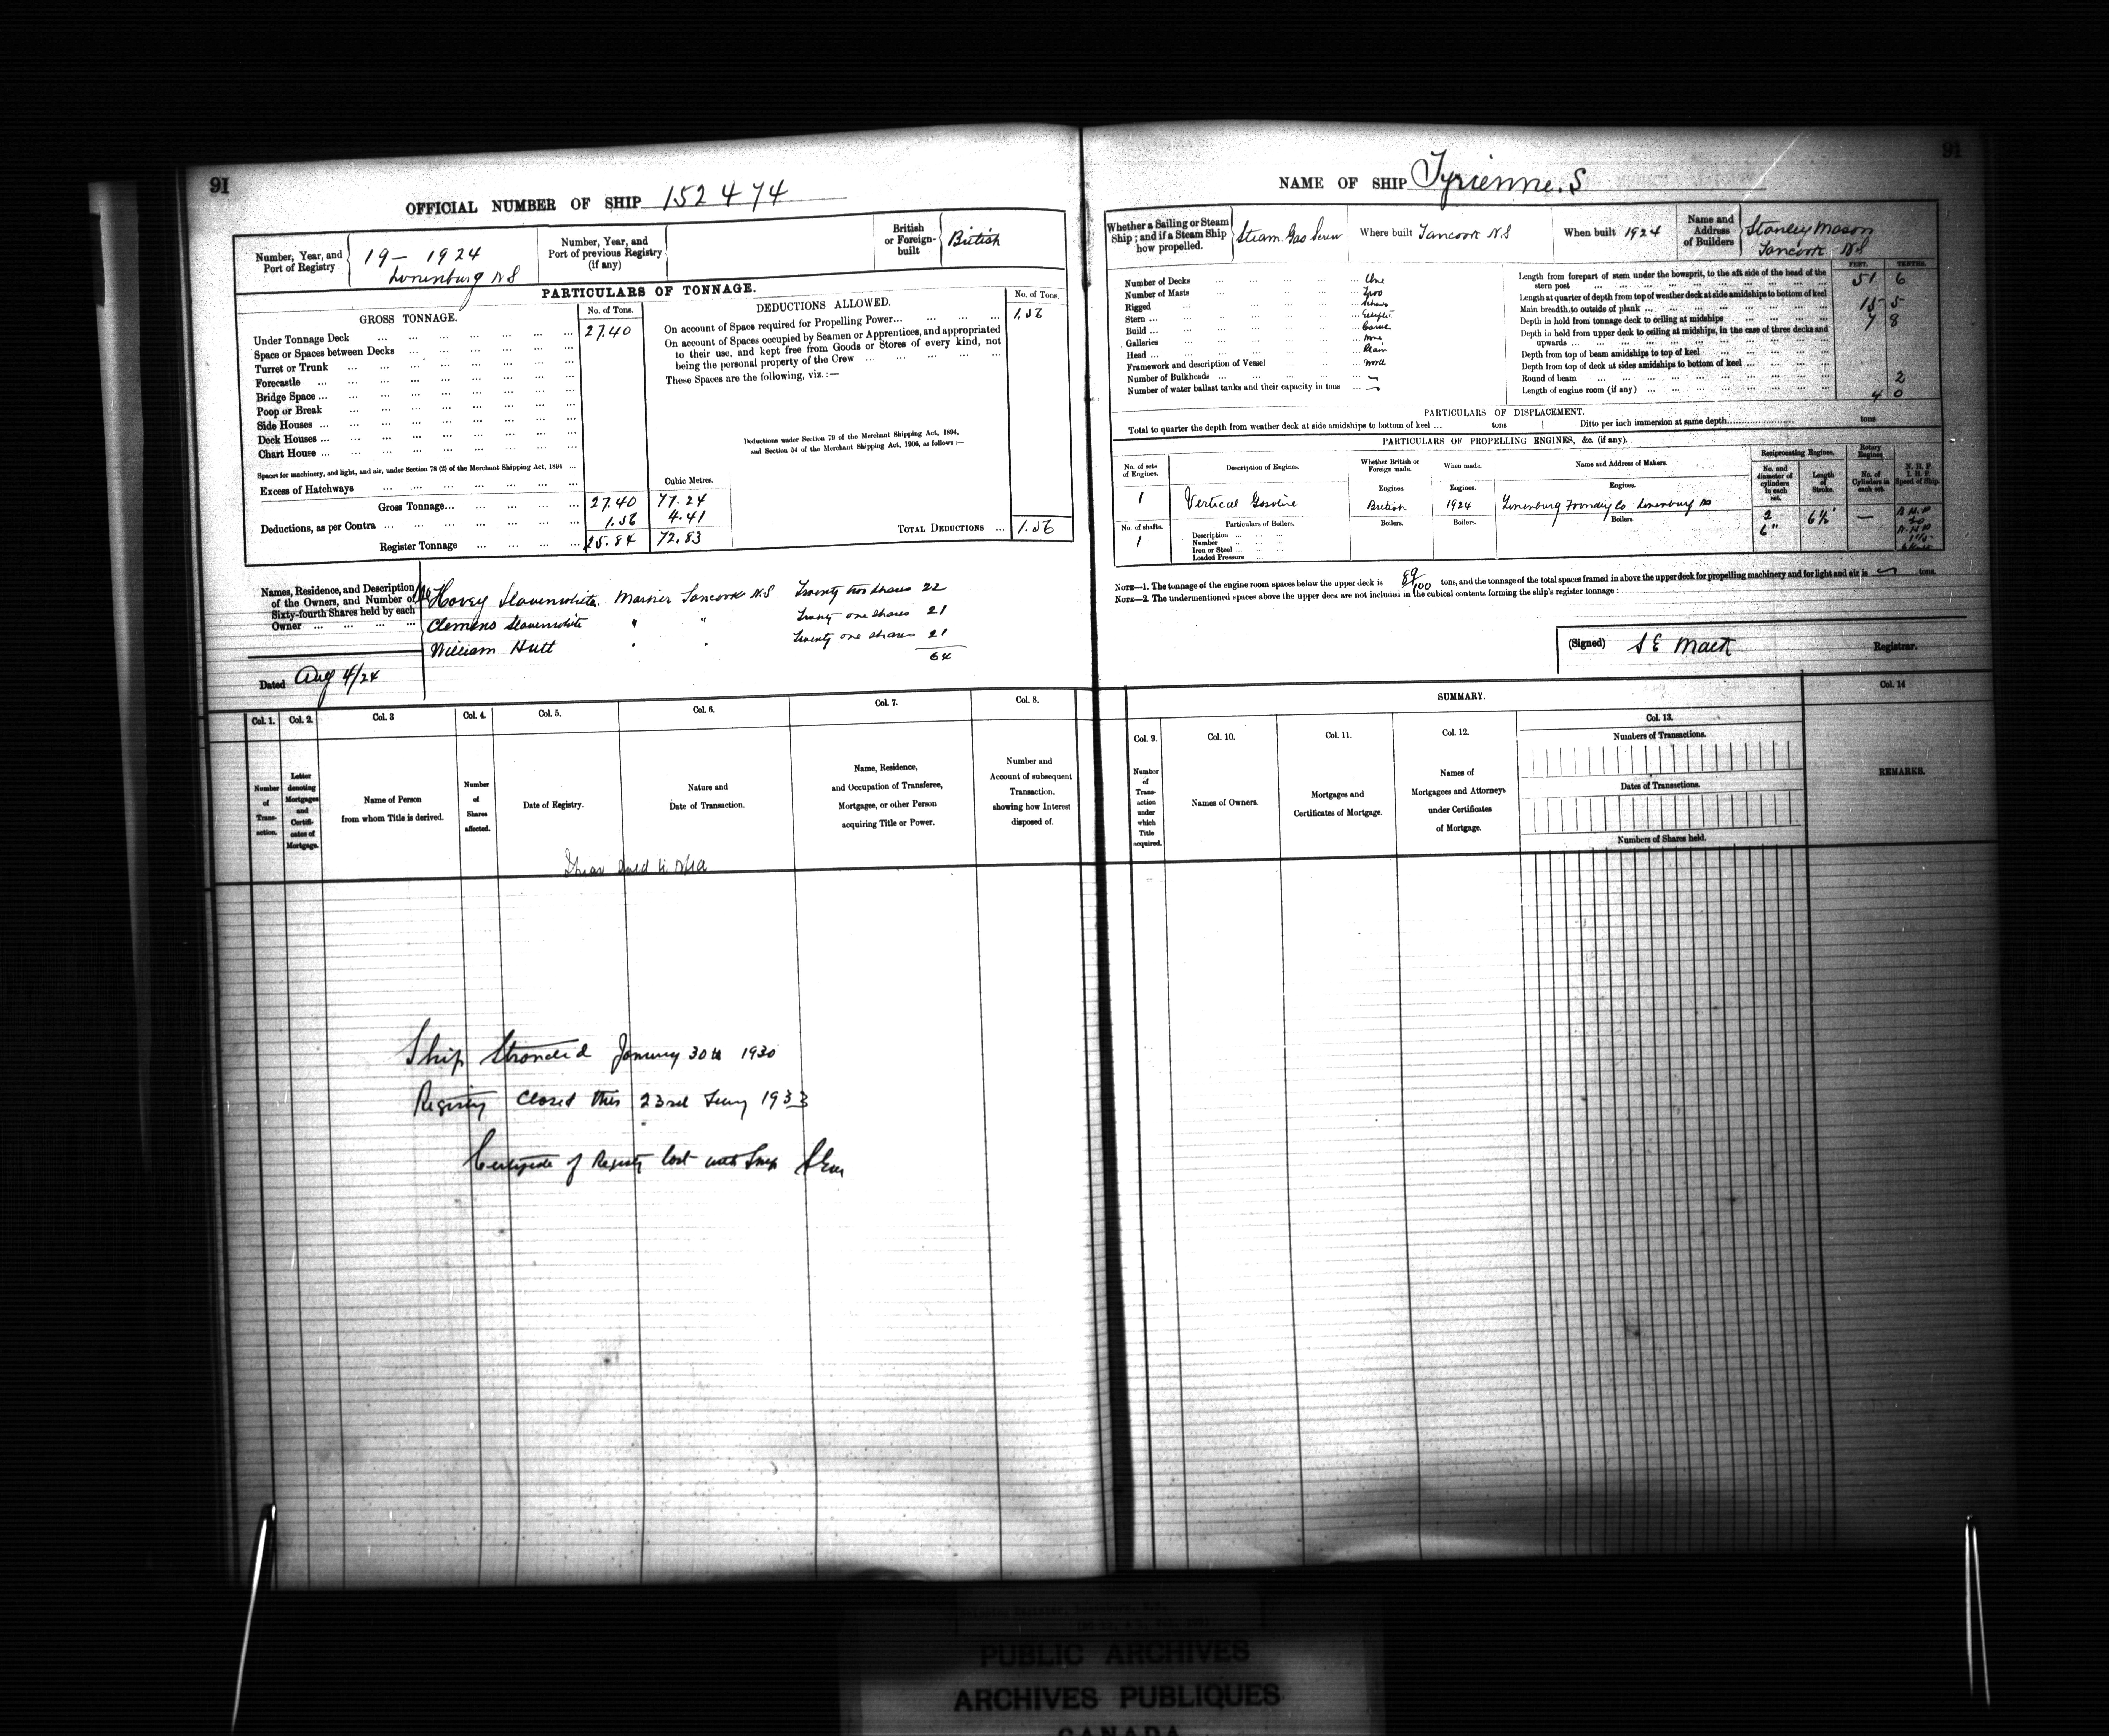 91
OFFICIAL NUMBER OF SHIP 152474
Number, Year, and Port of Registry
19 - 1924
Lunenburg N S
Number, Year, and Port of previous Registry (if any)
British or Foreign-built
British
PARTICULARS OF TONNAGE.
GROSS TONNAGE.
No. of Tons.
DEDUCTIONS ALLOWED.
No. of Tons.
Under Tonnage Deck ... 27.40
Space or Spaces between Decks ...
Turret or Trunk ...
Forecastle ...
Bridge Space ...
Poop or Break ...
Side Houses ...
Deck Houses ...
Chart House ...
Spaces for machinery, and light, and air, under Section 78 (2) of the Merchant Shipping Act, 1894 ...
Excess of Hatchways ...
Cubic Metres.
Gross Tonnage ... 27.40 77.24
Deductions, as per Contra ... 1.56 4.41
Register Tonnage ... 25.84 72.83
On account of Space required for Propelling Power ... 1.56
On account of Spaces occupied by Seamen or Apprentices, and appropriated
to their use, and kept free from Goods or Stores of every kind, not
being the personal property of the Crew ...
These Spaces are the following, viz.:—
Deductions under Section 79 of the Merchant Shipping Act, 1894,
and Section 54 of the Merchant Shipping Act, 1906, as follows:—
TOTAL DEDUCTIONS ... 1.56
Names, Residence, and Description of the Owners, and Number of Sixty-fourth Shares held by each Owner ...
Hovey Slauenwhite. Mariner Tancook N.S Twenty two shares 22
Clemens Slauenwhite " " Twenty one shares 21
William Hutt " " Twenty one shares 21
64
Dated Aug 4/24
Col. 1.
Number of Transaction.
Col. 2.
Letter denoting Mortgages and Certificates of Mortgage.
Col. 3
Name of Person from whom Title is derived.
Col. 4.
Number of Shares affected.
Col. 5.
Date of Registry.
Col. 6.
Nature and Date of Transaction.
Col. 7.
Name, Residence, and Occupation of Transferee, Mortgagee, or other Person acquiring Title or Power.
Col. 8.
Number and Account of subsequent Transaction, showing how Interest disposed of.
Ship Stranded January 30th 1930
Registry Closed this 23rd 1933
Certificate of Registry lost with Ship
91
NAME OF SHIP Tyrienne. S
Whether a Sailing or Steam Ship; and if a Steam Ship how propelled.
Steam Gas Screw
Where built Tancook N.S
When built 1924
Name and Address of Builders
Stanley Mason
Tancook N S
Number of Decks ... One
Number of Masts ... Two
Rigged ...
Stern ...
Build ...
Galleries ... None
Head ... Plain
Framework and description of Vessel ... Wood
Number of Bulkheads ...
Number of water ballast tanks and their capacity in tons ...
FEET. TENTHS.
Length from forepart of stem under the bowsprit, to the aft side of the head of the stern post ... 51 6
Length at quarter of depth from top of weather deck at side amidships to bottom of keel
Main breadth to outside of plank ... 15 5
Depth in hold from tonnage deck to ceiling at midships ... 7 8
Depth in hold from upper deck to ceiling at midships, in the case of three decks and upwards ...
Depth from top of beam amidships to top of keel ...
Depth from top of deck at sides amidships to bottom of keel ...
Round of beam ... 2
Length of engine room (if any) ... 4 0
PARTICULARS OF DISPLACEMENT.
Total to quarter the depth from weather deck at side amidships to bottom of keel ... tons
Ditto per inch immersion at same depth ... tons
PARTICULARS OF PROPELLING ENGINES, &c. (if any).
No. of sets of Engines.
Description of Engines.
Whether British or Foreign made.
When made.
Name and Address of Makers.
Reciprocating Engines.
No. and diameter of cylinders in each set.
Length of Stroke.
Rotary Engines.
No. of Cylinders in each set.
N. H. P.
I. H. P.
Speed of Ship.
Engines. Engines. Engines.
1 Vertical Gasoline British 1924 Lunenburg Foundry Co Lunenburg N S
2
6" 6½" —
No. of shafts.
1
Particulars of Boilers.
Description ...
Number ...
Iron or Steel ...
Loaded Pressure ...
Boilers. Boilers. Boilers
NOTE—1. The tonnage of the engine room spaces below the upper deck is 89/100 tons, and the tonnage of the total spaces framed in above the upper deck for propelling machinery and for light and air is tons.
NOTE—2. The undermentioned spaces above the upper deck are not included in the cubical contents forming the ship's register tonnage:
(Signed) S E Mack Registrar.
SUMMARY.
Col. 9.
Number of Transaction under which Title acquired.
Col. 10.
Names of Owners.
Col. 11.
Mortgages and Certificates of Mortgage.
Col. 12.
Names of Mortgagees and Attorneys under Certificates of Mortgage.
Col. 13.
Numbers of Transactions.
Dates of Transactions.
Numbers of Shares held.
Col. 14
REMARKS.
PUBLIC ARCHIVES
ARCHIVES PUBLIQUES
CANADA